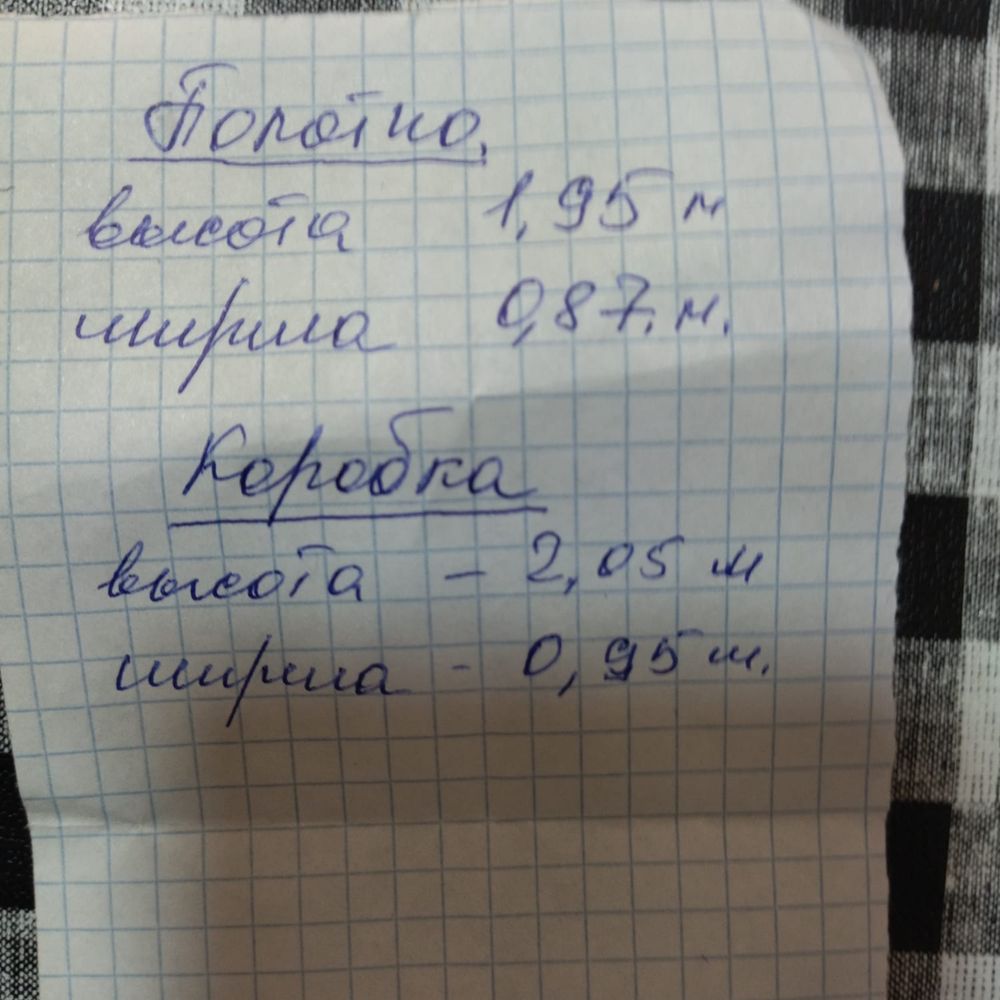 Полотно.
высота 1,95 м
ширина 0,87. м.
Коробка
высота - 2,05 м
ширина - 0,95 м.